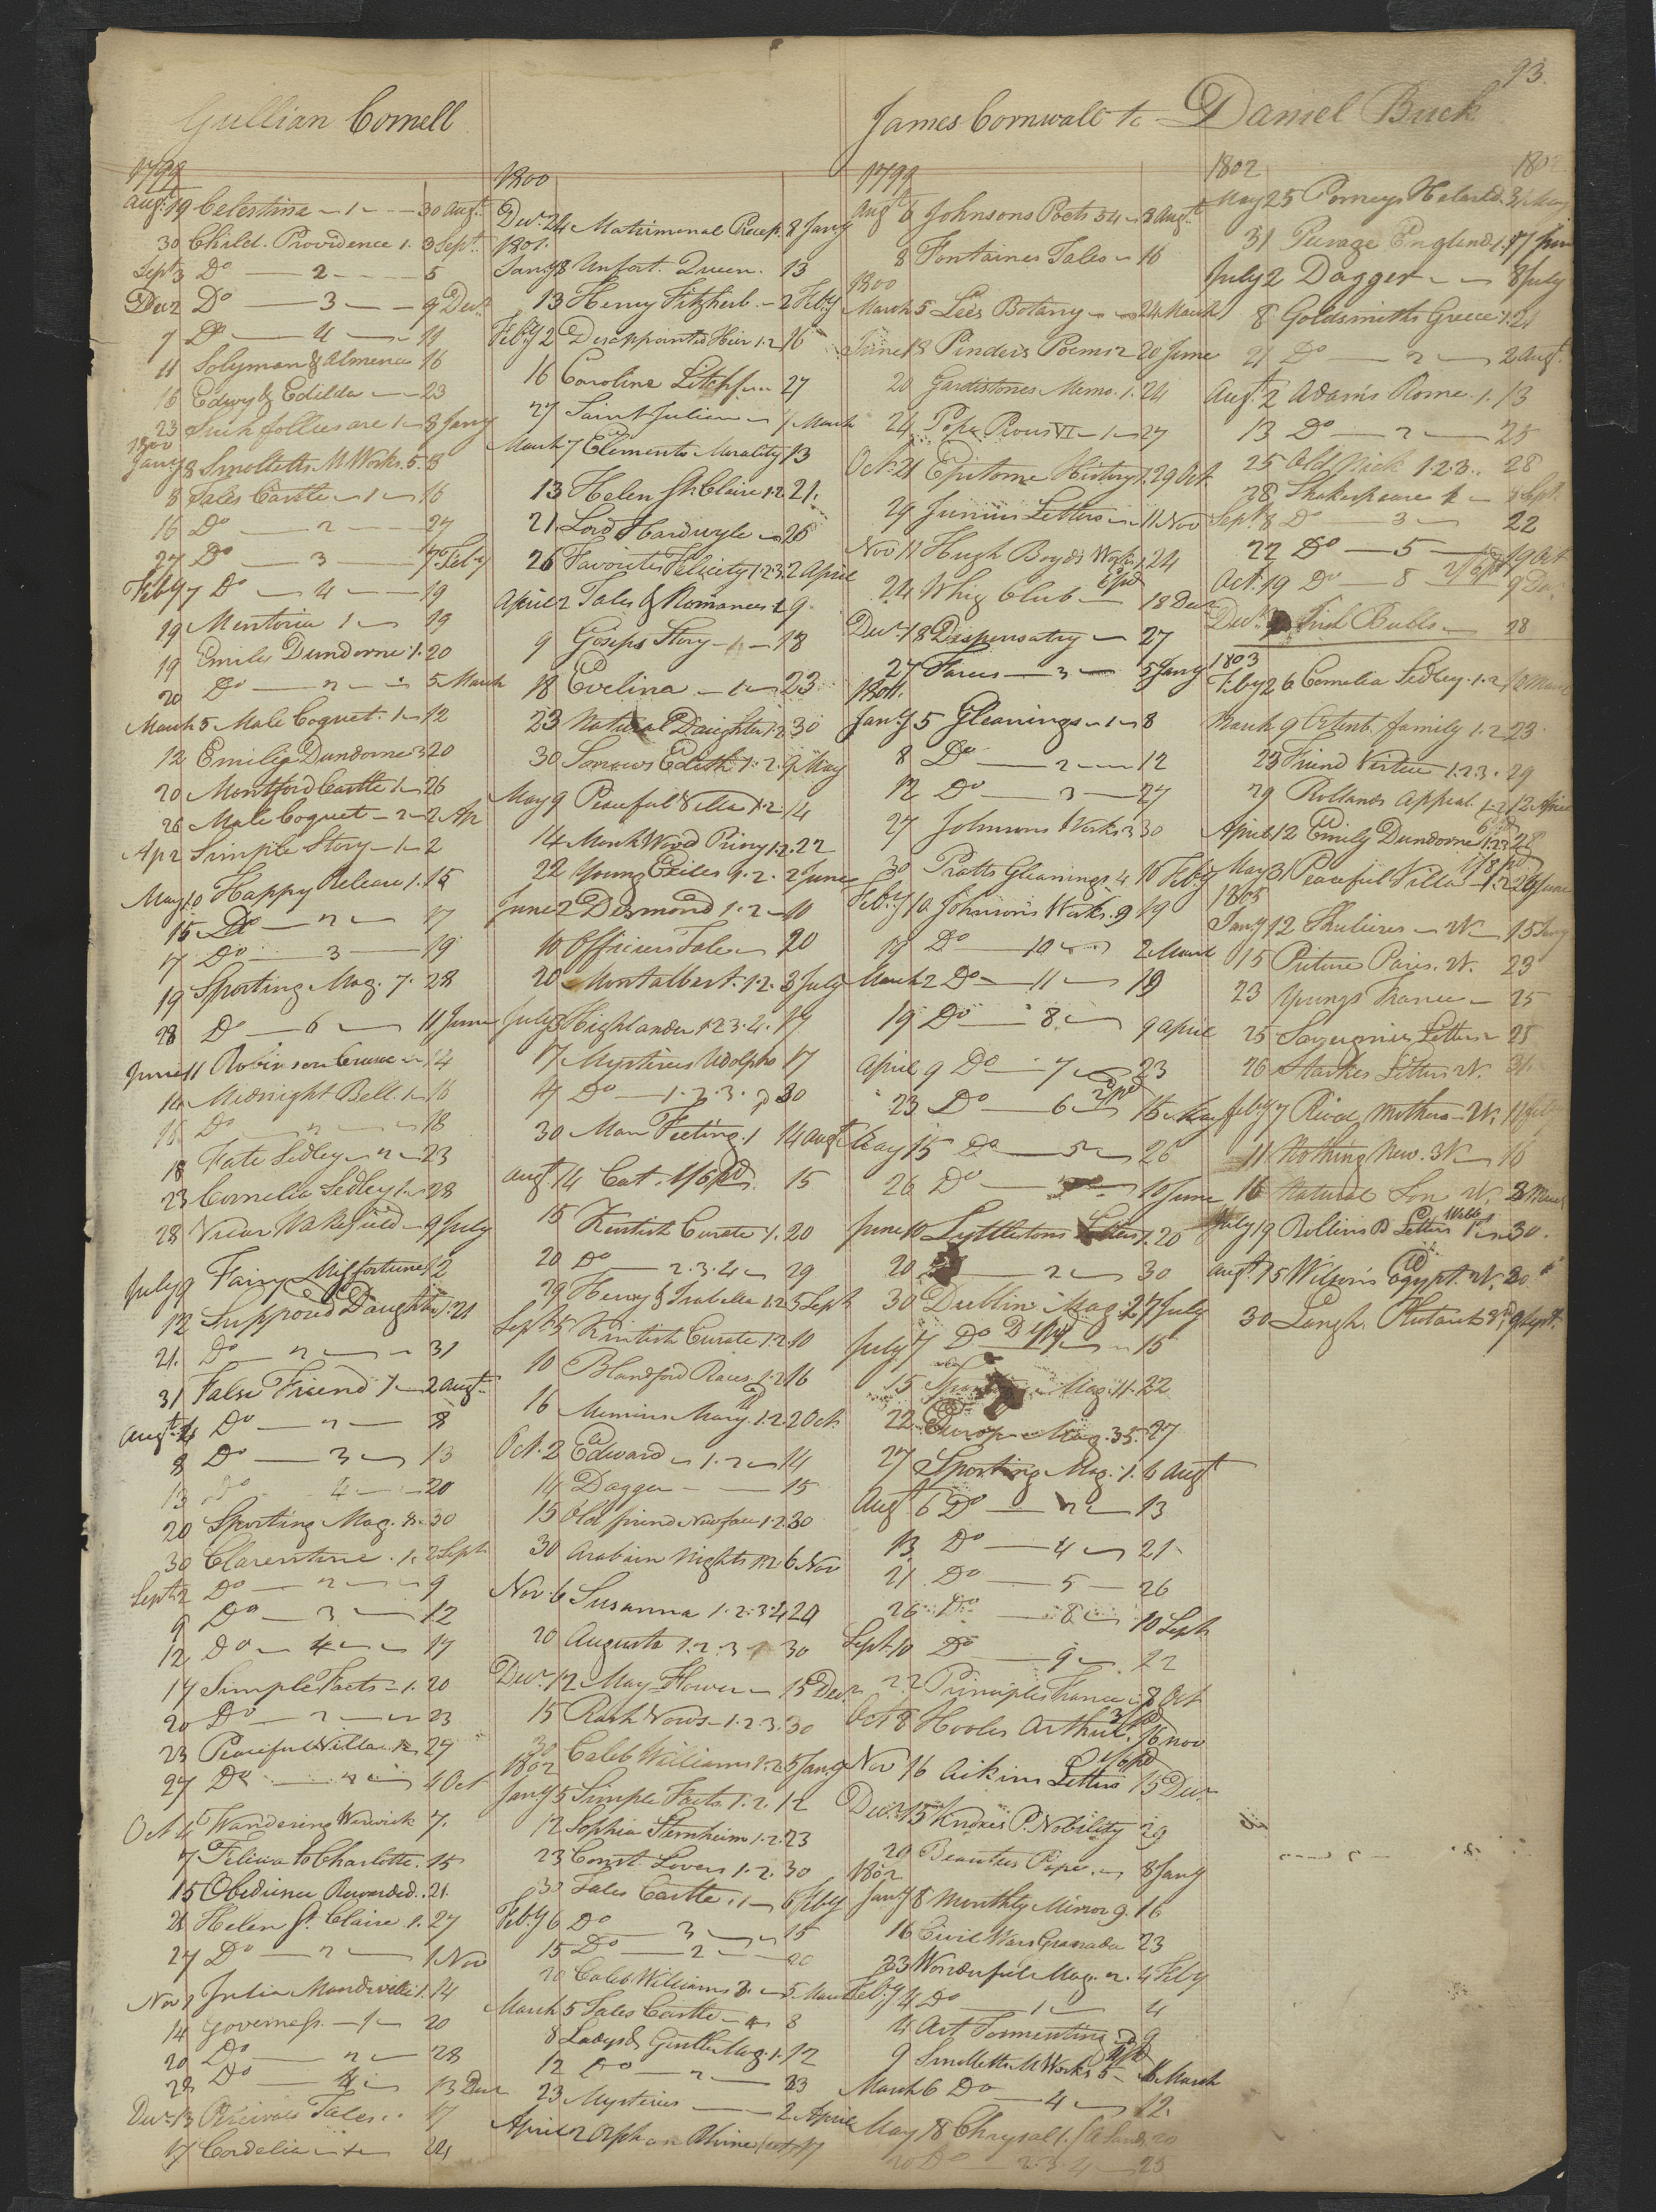 93.
Gullian Cornell
1799
Augt 19 Celestina — 1 — 30 Augt
30 Child. Providence 1. 3 Sept.
Sept 3 Do — 2 — 5
Decr 2 Do — 3 — 9 Decr
9 Do — 4 — 11
11 Solyman & Almena 16
16 Edwy & Edilda — 23
23 Such follies are 1 — 8 Jany
1800
Jany 8 Smolletts M Works. 5. 8
8 Tales Castle — 1 — 16
16 Do — 2 — 27
27 Do — 3 — 7 Feby
Feby 7 Do — 4 — 19
19 Mentoria 1 — 19
19 Emilie Dundorne 1. 20
20 Do — 2 — 5 March
March 5 Male Coquet. 1 — 12
12 Emilie Dundorne 3 20
20 Montford Castle 1 — 26
26 Male Coquet — 2 — 2 Ap
Ap 2 Simple Story — 1 — 2
May 10 Happy Release 1. 15
15 Do — 2 — 17
17 Do — 3 — 19
19 Sporting Mag. 7. 28
28 Do — 6 — 11 June
June 11 Robinson Crusoe — 14
14 Midnight Bell. 1 — 16
16 Do — 2 — 18
18 Fate Sedley — 2 — 23
23 Cornelia Sedley 1. 28
28 Vicar Wakefield — 9 July
July 9 Fairy Misfortunes 12
12 Supposed Daughter. 1. 21
21. Do — 2 — 31
31 False Friend 1 — 2 Augt
Augt 2 Do — 2 — 8
8 Do — 3 — 13
13 Do 4 — 20
20 Sporting Mag. 8. 30
30 Clarentine. 1. 2 Sept
Sept 2 Do — 2 — 9
9 Do — 3 — 12
12 Do — 4 — 17
17 Simple Facts — 1. 20
20 Do — 2 — 23
23 Peaceful Villa. 1 — 27
27 Do — 2 — 4 Oct
Oct 4 Wandering Warwick 7.
7 Felicia to Charlotte. 15
15 Obedience Rewarded. 21
21 Helen St Claire 1. 27
27 Do — 2 — 1 Nov
Nov 1 Julia Mandeville 1. 14
14 Governess. — 1 — 20
20 Do — 2 — 28
28 Do — 13 Decr
Decr 13 Percivals Tales. 17
17 Cordelia — 24
1800
Decr 24 Matrimonal Precep. 8 Jany
1801.
Jany 8 Unfort. Queen. 13
13 Henry Fitzherb. — 2 Feby
Feby 2 Disappointed Heir 1.2 16
16 Caroline Litchf — 27
27 Saint Julien — 7 March
March 7 Elements Morality 13
13 Helen St. Claire 1.2 21.
21 Lord Hardwyle — 26
26 Favorites Felicity 1.2.3. 2 April
April 2 Tales & Romances 1. 9
9 Gosips Story — 1 — 18
18 Evelina — 1 — 23
23 Natural Daughter 1.2. 30
30 Sorrows Edith 1.2. 9 May
May 9 Peaceful Villa 1.2. 14
14 Monk Wood Priory 1.2. 22
22 Young Exiles 1.2. 2 June
June 2 Desmond 1.2 — 10
10 Officers Tales 20
20 Montalbert. 1.2. 3 July
July 3 Highlander 1.2.3.4. 17
17 Mysteries Udolpho 17
17 Do — 1.2.3. 30
30 Man Feeling. 1 14 Augt
Augt 14 Cat. 1/6 pd 15
15 Kentish Curate 1. 20
20 Do — 2.3.4 — 29
29 Henry & Isabella 1.2. 5 Sept
Sept 5 Kentish Curate. 1.2. 10
10 Blandford Races. 1.2 16
16 Memoirs Mary. 1.2. 2 Oct
Oct. 2 Edward — 1.2 — 14
14 Dagger — — 15
15 Old friend New face 1.2. 30
30 Arabian Nights 1.2. 6 Nov
Nov. 6 Susanna 1.2.3.4 20
20 Augusta 1.2.3 30
Decr 12 May Flower — 15 Decr
15 Rash Vows — 1.2.3. 30
30 Caleb Williams 1.2. 5 Jany
1802
Jany 5 Simple Facts 1.2. 12
12 Sophia Sternheim 1.2. 23
23 Const. Lovers 1.2. 30
30 Tales Castle. 1 — 6 Feby
Feby 6 Do — 3 — 15
15 Do — 2 — 20
20 Caleb Williams 3. — 5 March
March 5 Tales Castle — 4 8
8 Ladys & Gentle Mag. 1. 12
12 Do — 2 — 23
23 Mysteries — 2 April
April 2 Orphan Rhine 17
James Cornwall to Daniel Buck
1799
Augt 6 Johnsons Poets 54 — 8 Augt
8 Fontaines Tales — 16
1800
March 5 Lees Botany — 24 March
June 18 Pinders Poems 2 20 June
20 Gardistones Memo. 1. 24
24 Pope Pious VI — 1 — 27
Oct. 21 Epitome History 1. 29 Oct
29 Junius Letters — 11 Nov
Nov 11 Hugh Boyds Works 1. 24
24 Whig Club — 18 Decr
Decr 18 Dispensatry — 27
27 Farces — 3 — 5 Jany
1801.
Jany 5 Gleanings — 1 — 8
8 Do — 2 — 12
12 Do — 3 — 27
27 Johnsons Works 3 30
30 Pratts Gleanings 4 10 Feby
Feby 10 Johnsons Works. 9 19
19 Do — 10 — 2 March
March 2 Do — 11 — 19
19 Do — 8. — 9 April
April 9 Do — 7 — 23
23 Do — 6 — 15 May
May 15 Do — 5 — 26
26 Do — 10 June
June 10 Lyttletons Letters 1. 20
20 — 2 — 30
30 Dublin Mag. 27 July
July 7 Do — 15
15 Mag. 11. 22
22 Europ Mag. 35. 27
27 Sporting Mag. 1. 6 Augt
Augt 6 Do — 2 — 13
13 Do — 4 — 21
21 Do — 5 — 26
26 Do — 8 — 10 Sept
Sept 10 Do — 9 — 22
22 Principles France 8 Oct
Oct 8 Hooles Arthur. 16 Nov
Nov 16 Aikins Letters 15 Decr
Decr 15 Knoxes P. Nobility 29
29 Beauties Pope. — 8 Jany
1802
Jany 8 Monthly Mirror 9. 16
16 Civil Wars Granada 23
23 Wonderful Mag. 2. 4 Feby
Feby 4 Do — 1 — 4
4 Art Tormenting 9
9 Smolletts M Works 5 — 6 March
March 6 Do — 4 — 12.
May 18 Chrysal 1. 20
20 Do — 2.3.4 — 25
1802 1802
May 25 Porneys Helarld. 31 May
31 Peerage England. 1. 17 Jun
July 2 Dagger — — 8 July
8 Goldsmiths Greece 1. 21
21 Do — 2 — 2 Augt
Augt 2 Adams Rome. 1. 13
13 Do — 2 — 25
25 Old Nick 1.2.3.. 28
28 Shakespeare — 8 Sept.
Sept 8 Do — 3 — 22
22 Do — 5 — 19 Oct
Oct. 19 Do — 8 — 9 De
Decr Irish Bulls — 28
1803
Feby 26 Cornelia Sedley. 1.2 March
March 9 family 1.2 23.
23 Friend Virtue 1.2.3. 29
29 Rollands Appeal. 1.2 12 April
April 12 Emily Dundorne 1.2.3 28
May 31 Peaceful Villa — 1.2 June
1805
Jany 12 — N — 15 Jany
15 Picture Paris. N. 23
23 Youngs France — 25
25 Letters 25
26 Starkes Letters N. 31.
Feby 7 Rival Mothers — N. 11 Feby
11 Nothing New. 3 N — 16
16 Natural Son N. 2 March
July 19 Rollins B Letters 30.
Augt 15 Wilsons Egypt. N. 30
30 Langh. Plutarch 9 Sept.